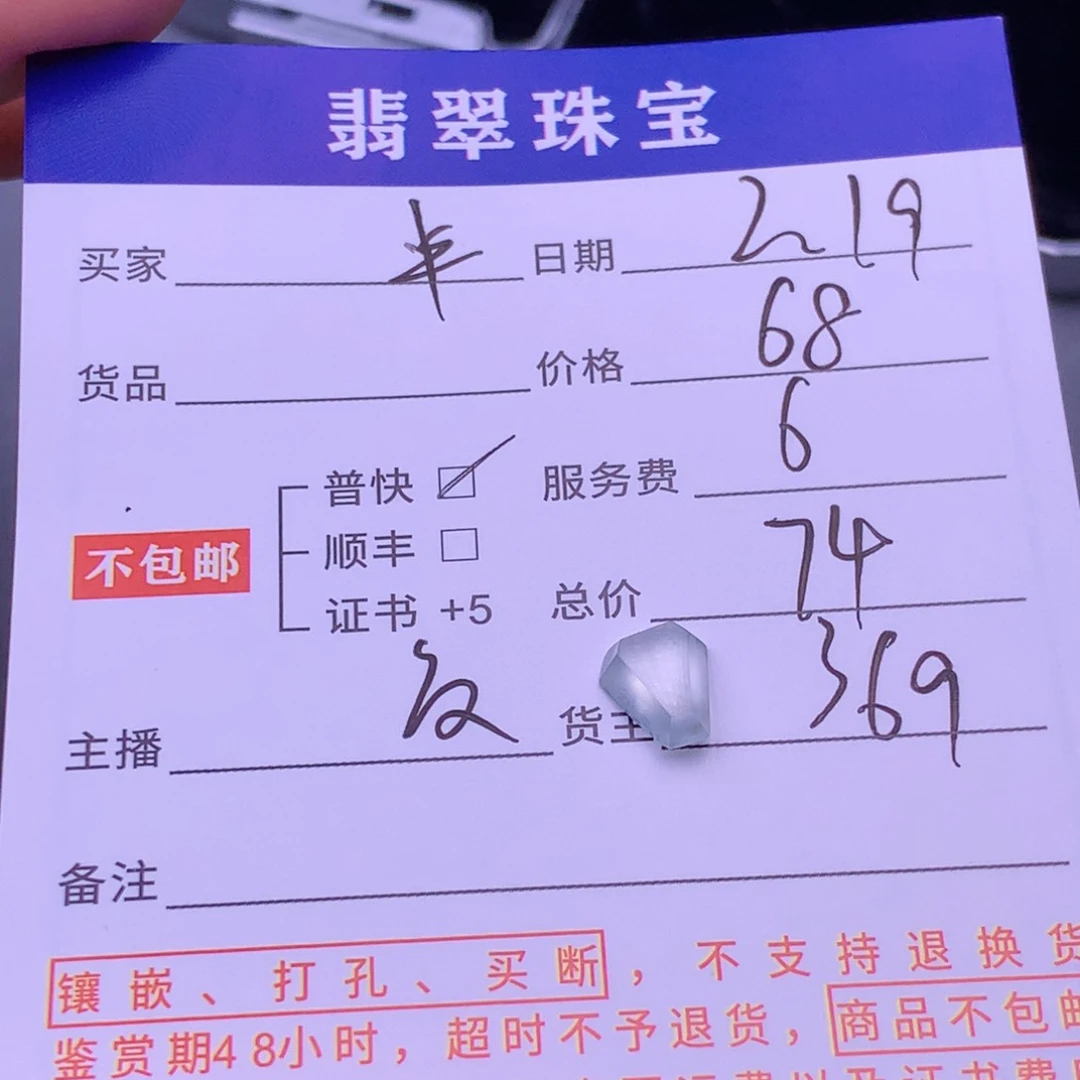 翡翠珠宝
买家 丰 日期 219
货品 价格 68
普快 服务费 6
不包邮 顺丰
证书 +5 总价 74
主播 货主 369
备注
镶嵌、打孔、买断，不支持退换货
鉴赏期48小时，超时不予退货，商品不包邮